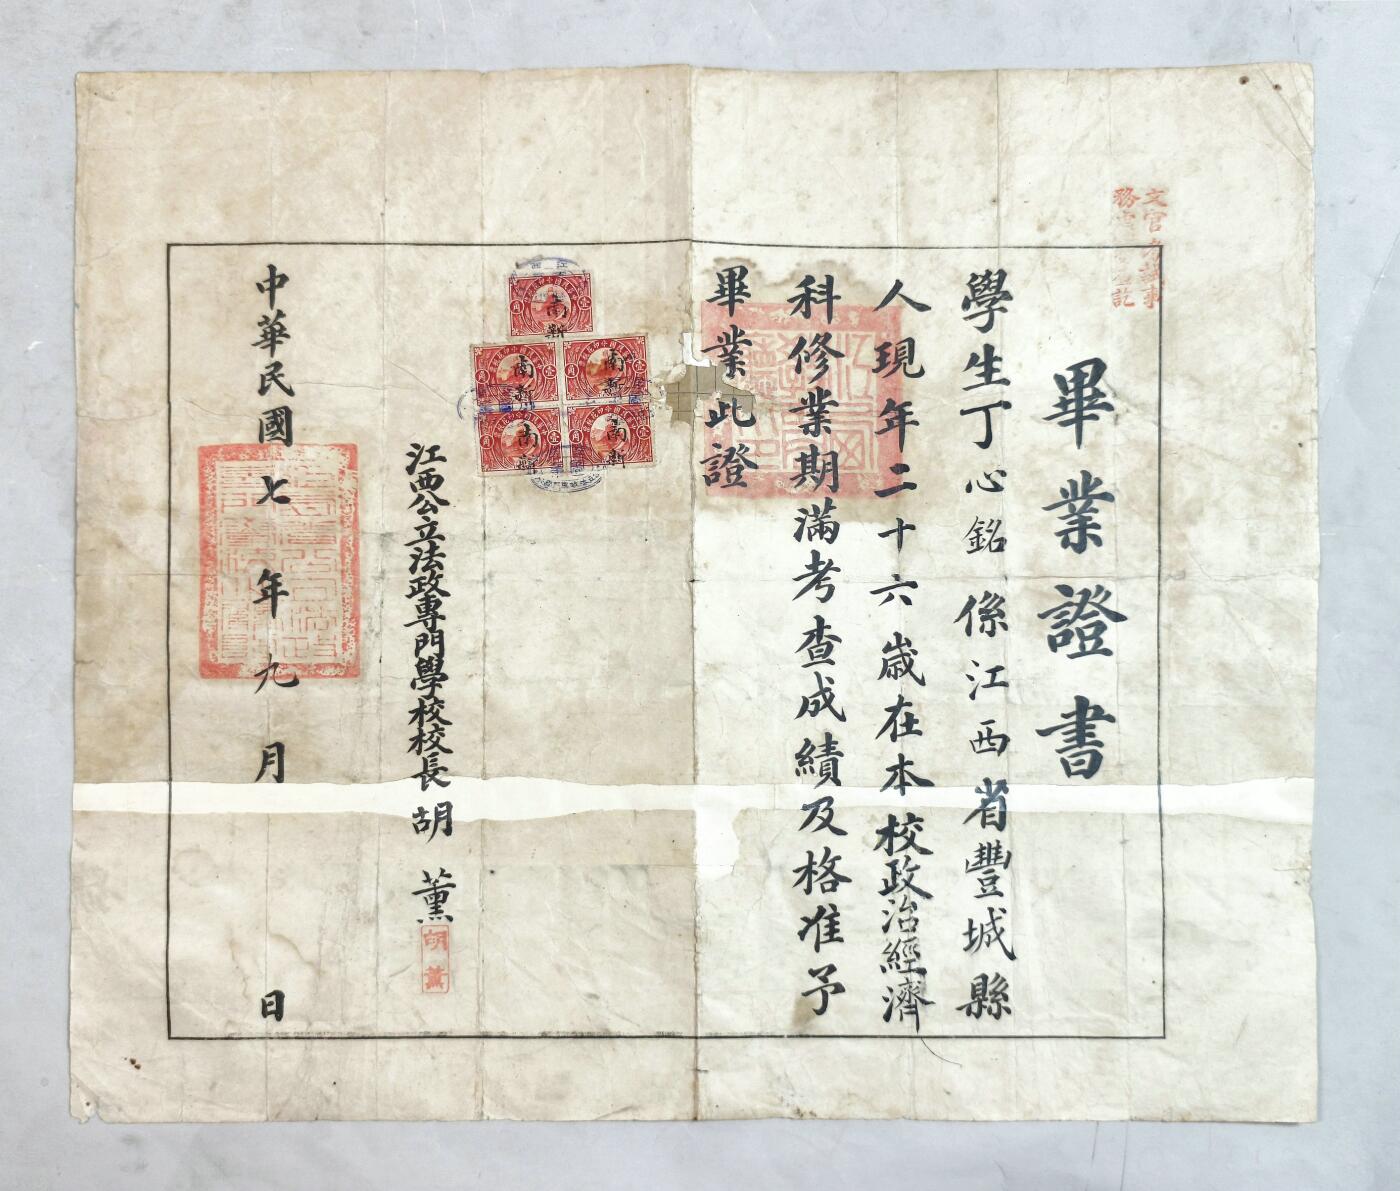 畢業證書
學生丁心銘係江西省豐城縣
人現年二十六歲在本校政治經濟
科修業期滿考查成績及格准予
畢業此證
江西公立法政專門學校校長胡薰
胡薰
中華民國七年九月 日